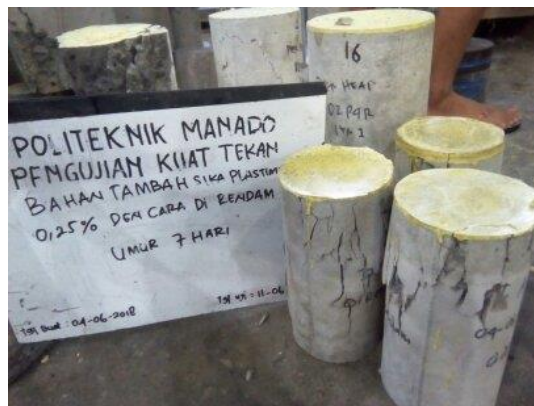 POLITEKNIK MANADO
PENGUJIAN KUAT TEKAN
BAHAN TAMBAH SIKA PLASTIM
0,25% DEN CARA DI RENDAM
UMUR 7 HARI
Tgl Buat : 04-06-2018
Tgl uji : 11-06
16